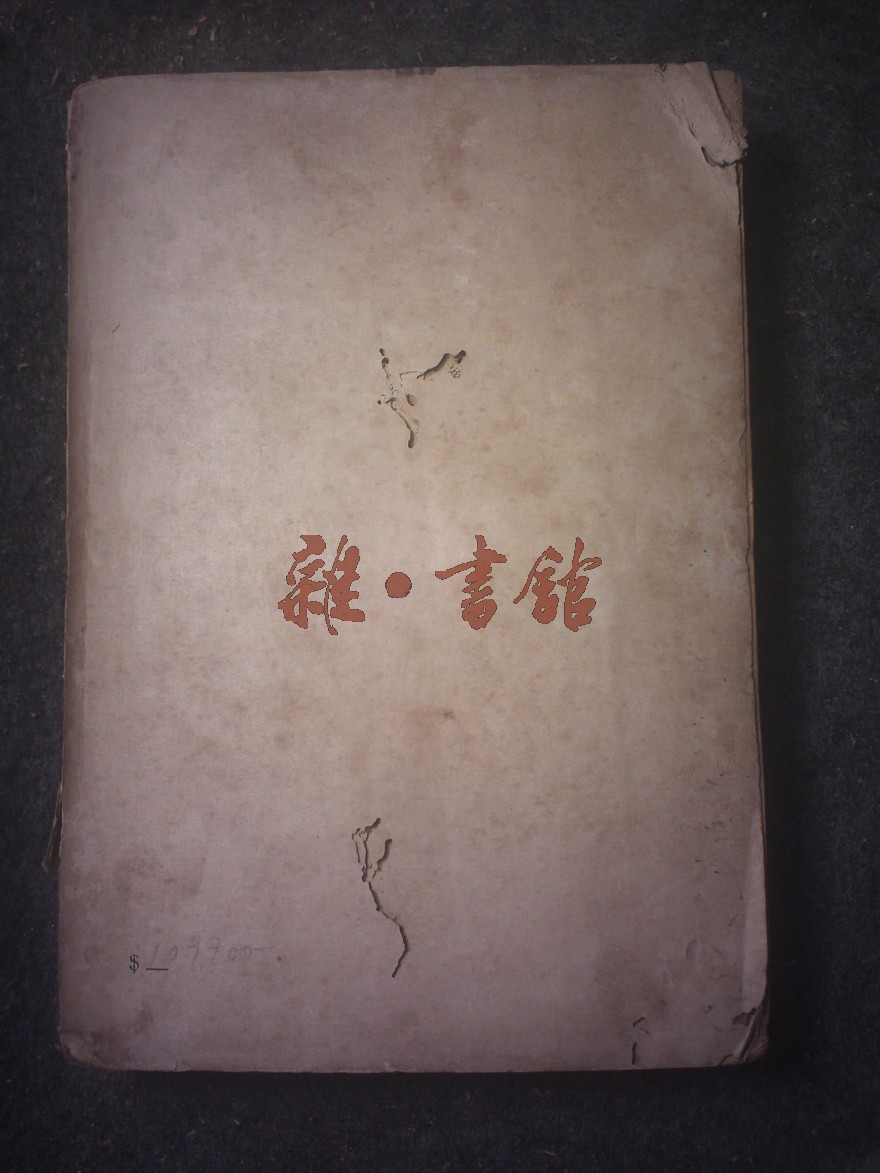 雜·書館
$ 109700